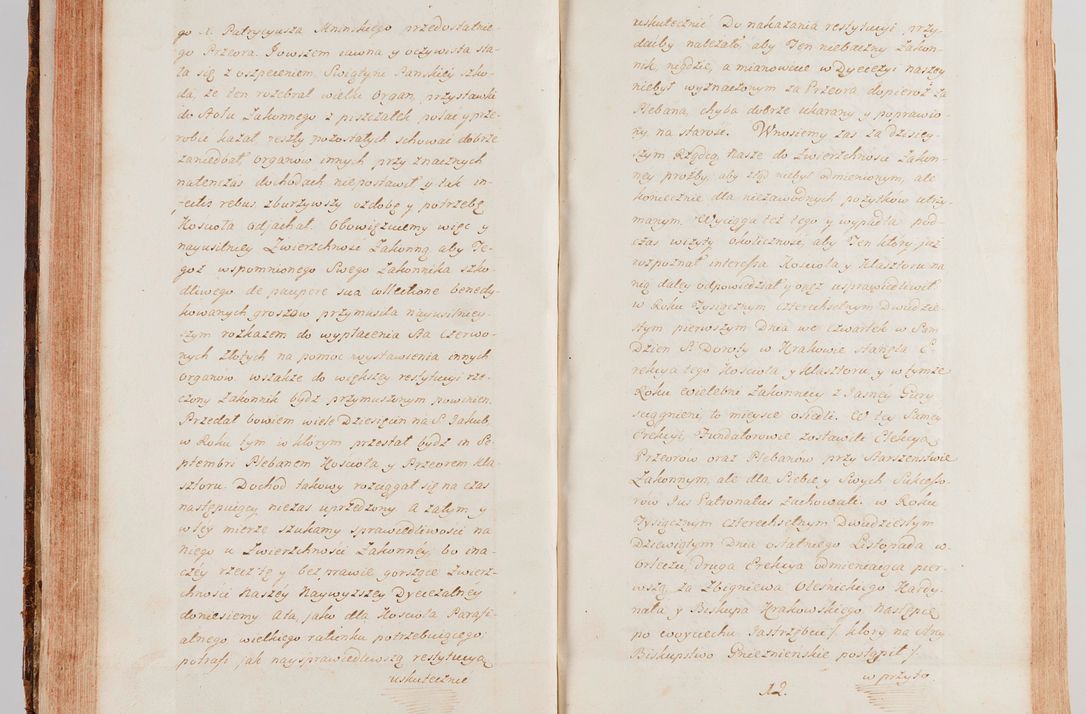 go X. Patrycyusza Mninskiego przedostatnie-
go Przeora. Jowszem jawna y oczywista sta-
ła się z oszpeceniem Swiątyni Pańskiey szko-
da, że ten rozebrał wielki Organ, przystawki
do Stołu Zakonnego z piszczałek polac y prze-
robic kazał, reszty pozostałych schować dobrze
zaniedbał, organow innych przy znacznych
natenczas dochodach niepostawił y tak in-
fectis rebus zburzywszy ozdobę y potrzebę
Kościoła odjachał. Obowiązujemy więc y
nayusilniey Zwierzchność Zakonną aby Te-
goż wspomnionego Swego Zakonnika szko-
dliwego de paupere sua collectione benedy-
kowanych groszow przymusiła nayusilniey-
szym rozkazem do wypłacenia Sta Czerwo-
nych Złotych na pomoc wystawienia innych
organow. wszakże do większey restytucyi rze-
czony Zakonnik bydź przymuszonym powinien.
Przedał bowiem wiele Dziesięcin na S. Jakub,
w Roku tym w którym przestał bydź in Se-
ptembri Plebanem Kościoła y Przeorem Kla-
sztoru. Dochod takowy rozciągał się na czas
następujący nieźas uprzedzony. A zatym y
w tey mierze szukamy sprawiedliwości na
niego u Zwierzchności Zakonney, bo ina-
czey rzecz tę y bezprawie gorszące Zwierz-
chności Naszey Naywyższey Dyecezalney
doniesiemy. Ata, jako dla Kościoła Parafi-
alnego wielkiego ratunku potrzebującego
potrafi jak nay sprawiedliwszą restytucyą
uskutecznie
uskutecznić Do nakazania restytucyi przy-
daćby należało, aby Ten niebaczny Zakon-
nik nigdzie, a mianowicie w Dyecezyi naszey
niebył wyznaczonym za Przeora dopieroż za
Plebana, chyba dobrze ukarany y poprawio-
ny na starość. Wnosiemy zas za Dzisiey-
szym Rządcą Nasze do Zwierzchności Zakon-
ney prozby, aby ztąd niebył odmienionym, ale
koniecznie dla niezawodnych pożytków utrzy-
manym. Wyciąga też tego y wypadła pod-
czas wizyty okoliczność, aby Ten który jeż
rozpoznał interessa Kościoła y Klasztoru na
nią daley odpowiedział y onęż usprawiedliwił
w Roku Tysiącznym czterechsetnym Dwudzie-
stym pierwszym Dnia we czwartek w Sam
Dzien S. Doroty w Krakowie stanęła E-
rekcya tego Kościoła y Klasztoru y w tymże
Roku Wielebni Zakonnicy z Jasney Gury
sciągnieni to mieysce osiedli. W tey Samey
Erekcyi, Fundatorowie zostawili Elekcyą
Przeorów oraz Plebanów przy Starszeństwie
Zakonnym, ale dla Siebie y Swych Sukcesso-
rów Jus Patronatus zachowali. w Roku
Tysiącznym czterechsetnym Dwudziestym
Dziewiątym Dnia ostatniego Listopada w
orleczu druga Erekcya odmieniająca pier-
wszą za Zbigniewa Olesnickiego Kardy-
nała y Biskupa Krakowskiego Następcę
po Woyciechu Jastrzębcu /: który na Arcy
Biskupstwo Gnieznieńskie postąpił :/
12. w przyto